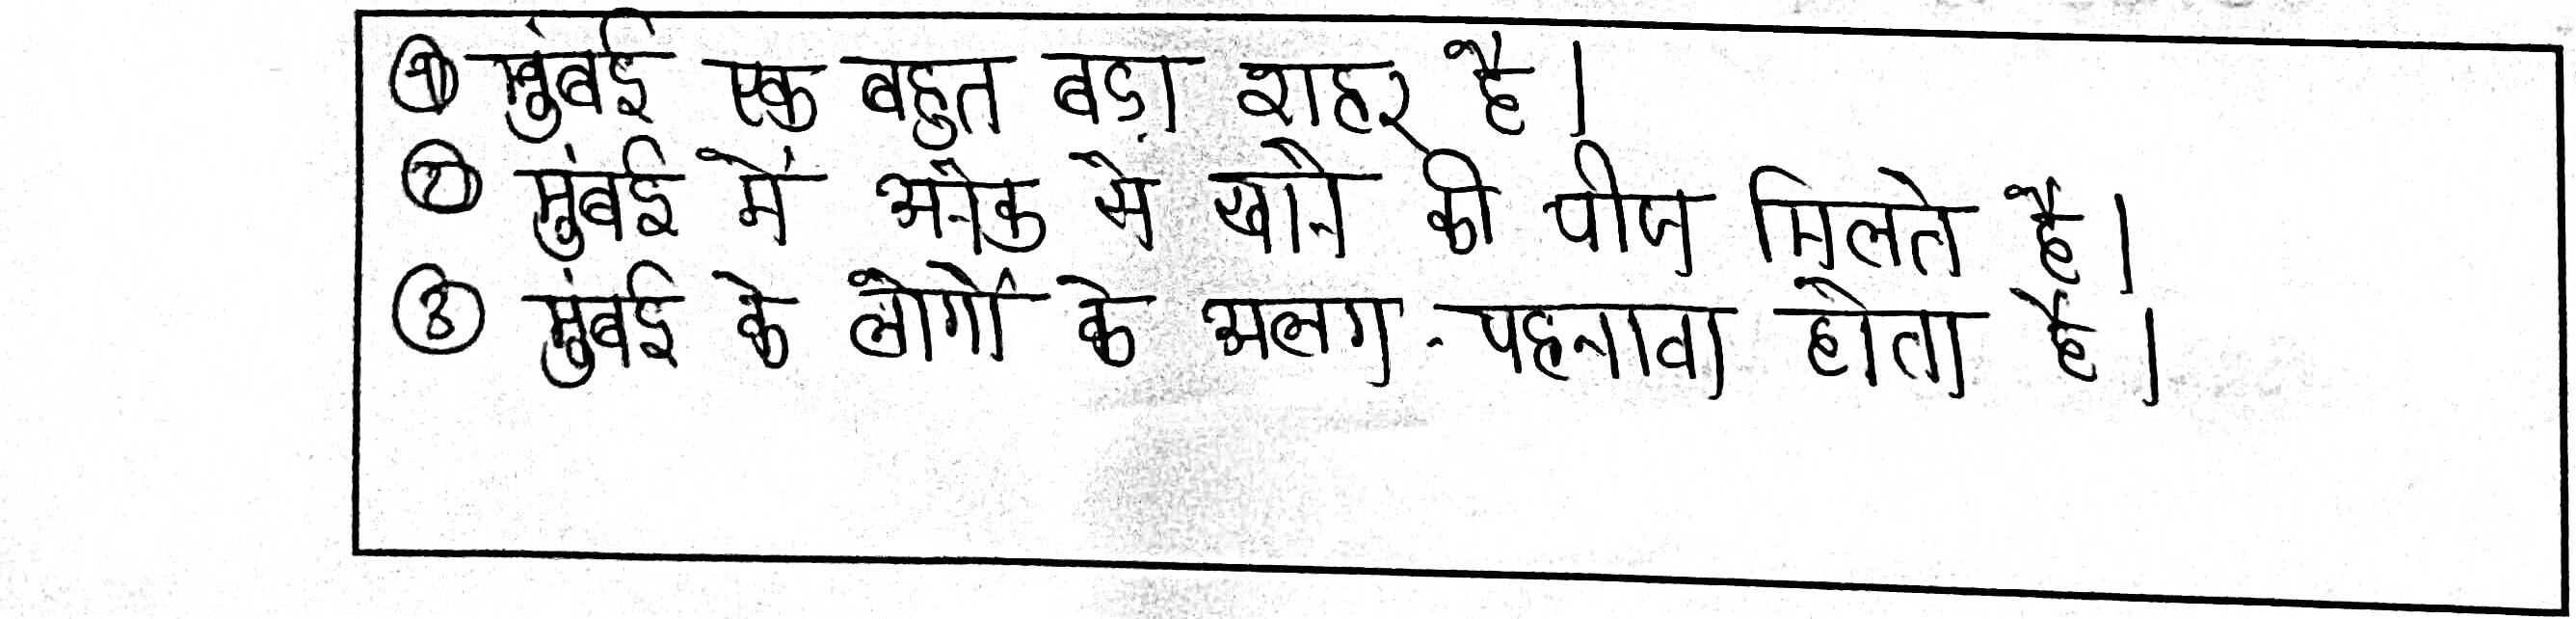 ① मुंबई एक बहुत बड़ा शहर है।
② मुंबई में अनेक से खाने की चीज मिलते है।
③ मुंबई के लोगों के अलग-पहनावा होता है।